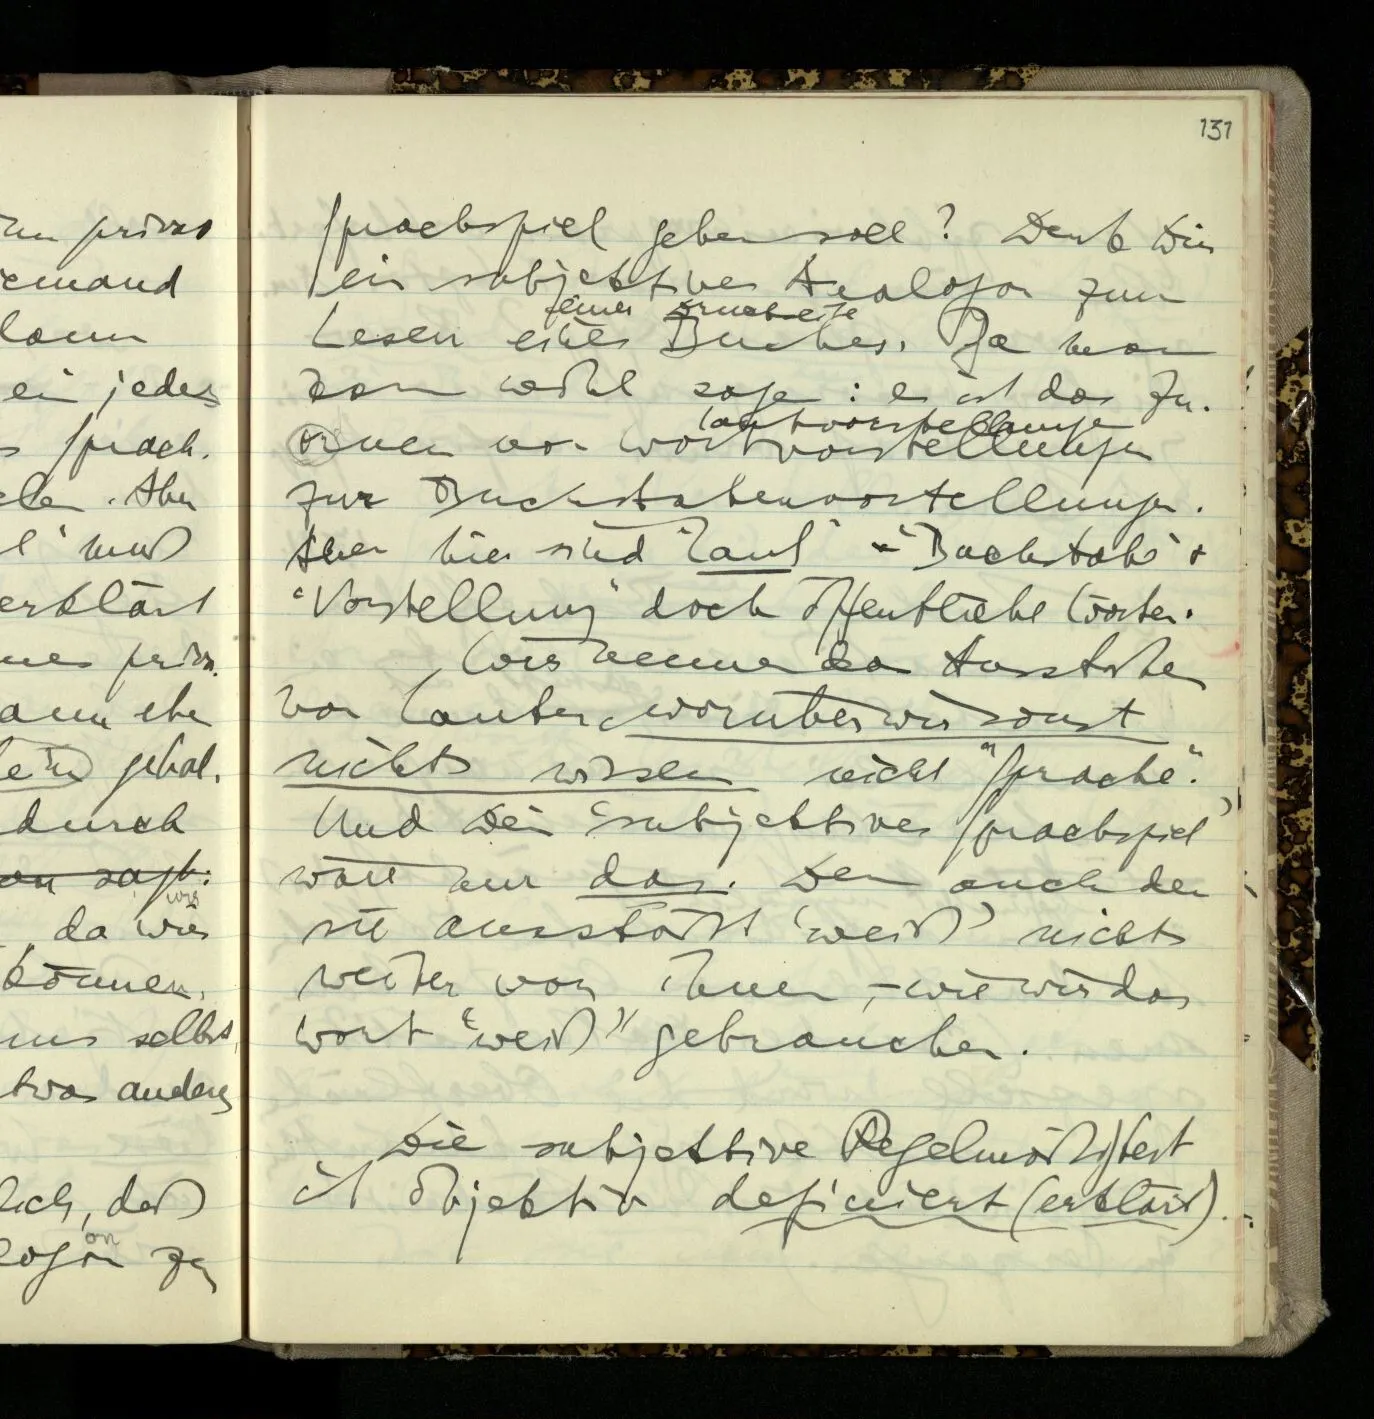 131
Sprachspiel geben soll? Denk Dir
ein subjektives Analogon zum
einer Druckseite
Lesen eines Buches. Ja man
kann wohl sagen: es ist das Zu-
Lautvorstellungen
ordnen von Wortvorstellungen
zur Buchstabenvorstellungen.
Aber hier sind 'Laut' - 'Buchstabe' &
'Vorstellung' doch öffentliche Wörter.
Wir nennen das Ausstoßen
von Lauten, worüber wir sonst
nichts wissen nicht "Sprache".
Und Dein 'subjektives Sprachspiel'
wäre nur das. Denn auch der
sie ausstößt 'weiß' nichts
weiter von ihnen, – wie wir das
Wort "weiß" gebrauchen.
Die subjektive Regelmäßigkeit
ist objektiv definiert (erklärt).
privat
jemand
dann
ein jedes
Sprach-
Aber
muß
erklärt
priva-
ehe
gehal-
durch
sagt:
wir
, da wir
können.
uns selbst
etwas anderes
, daß
on
zu